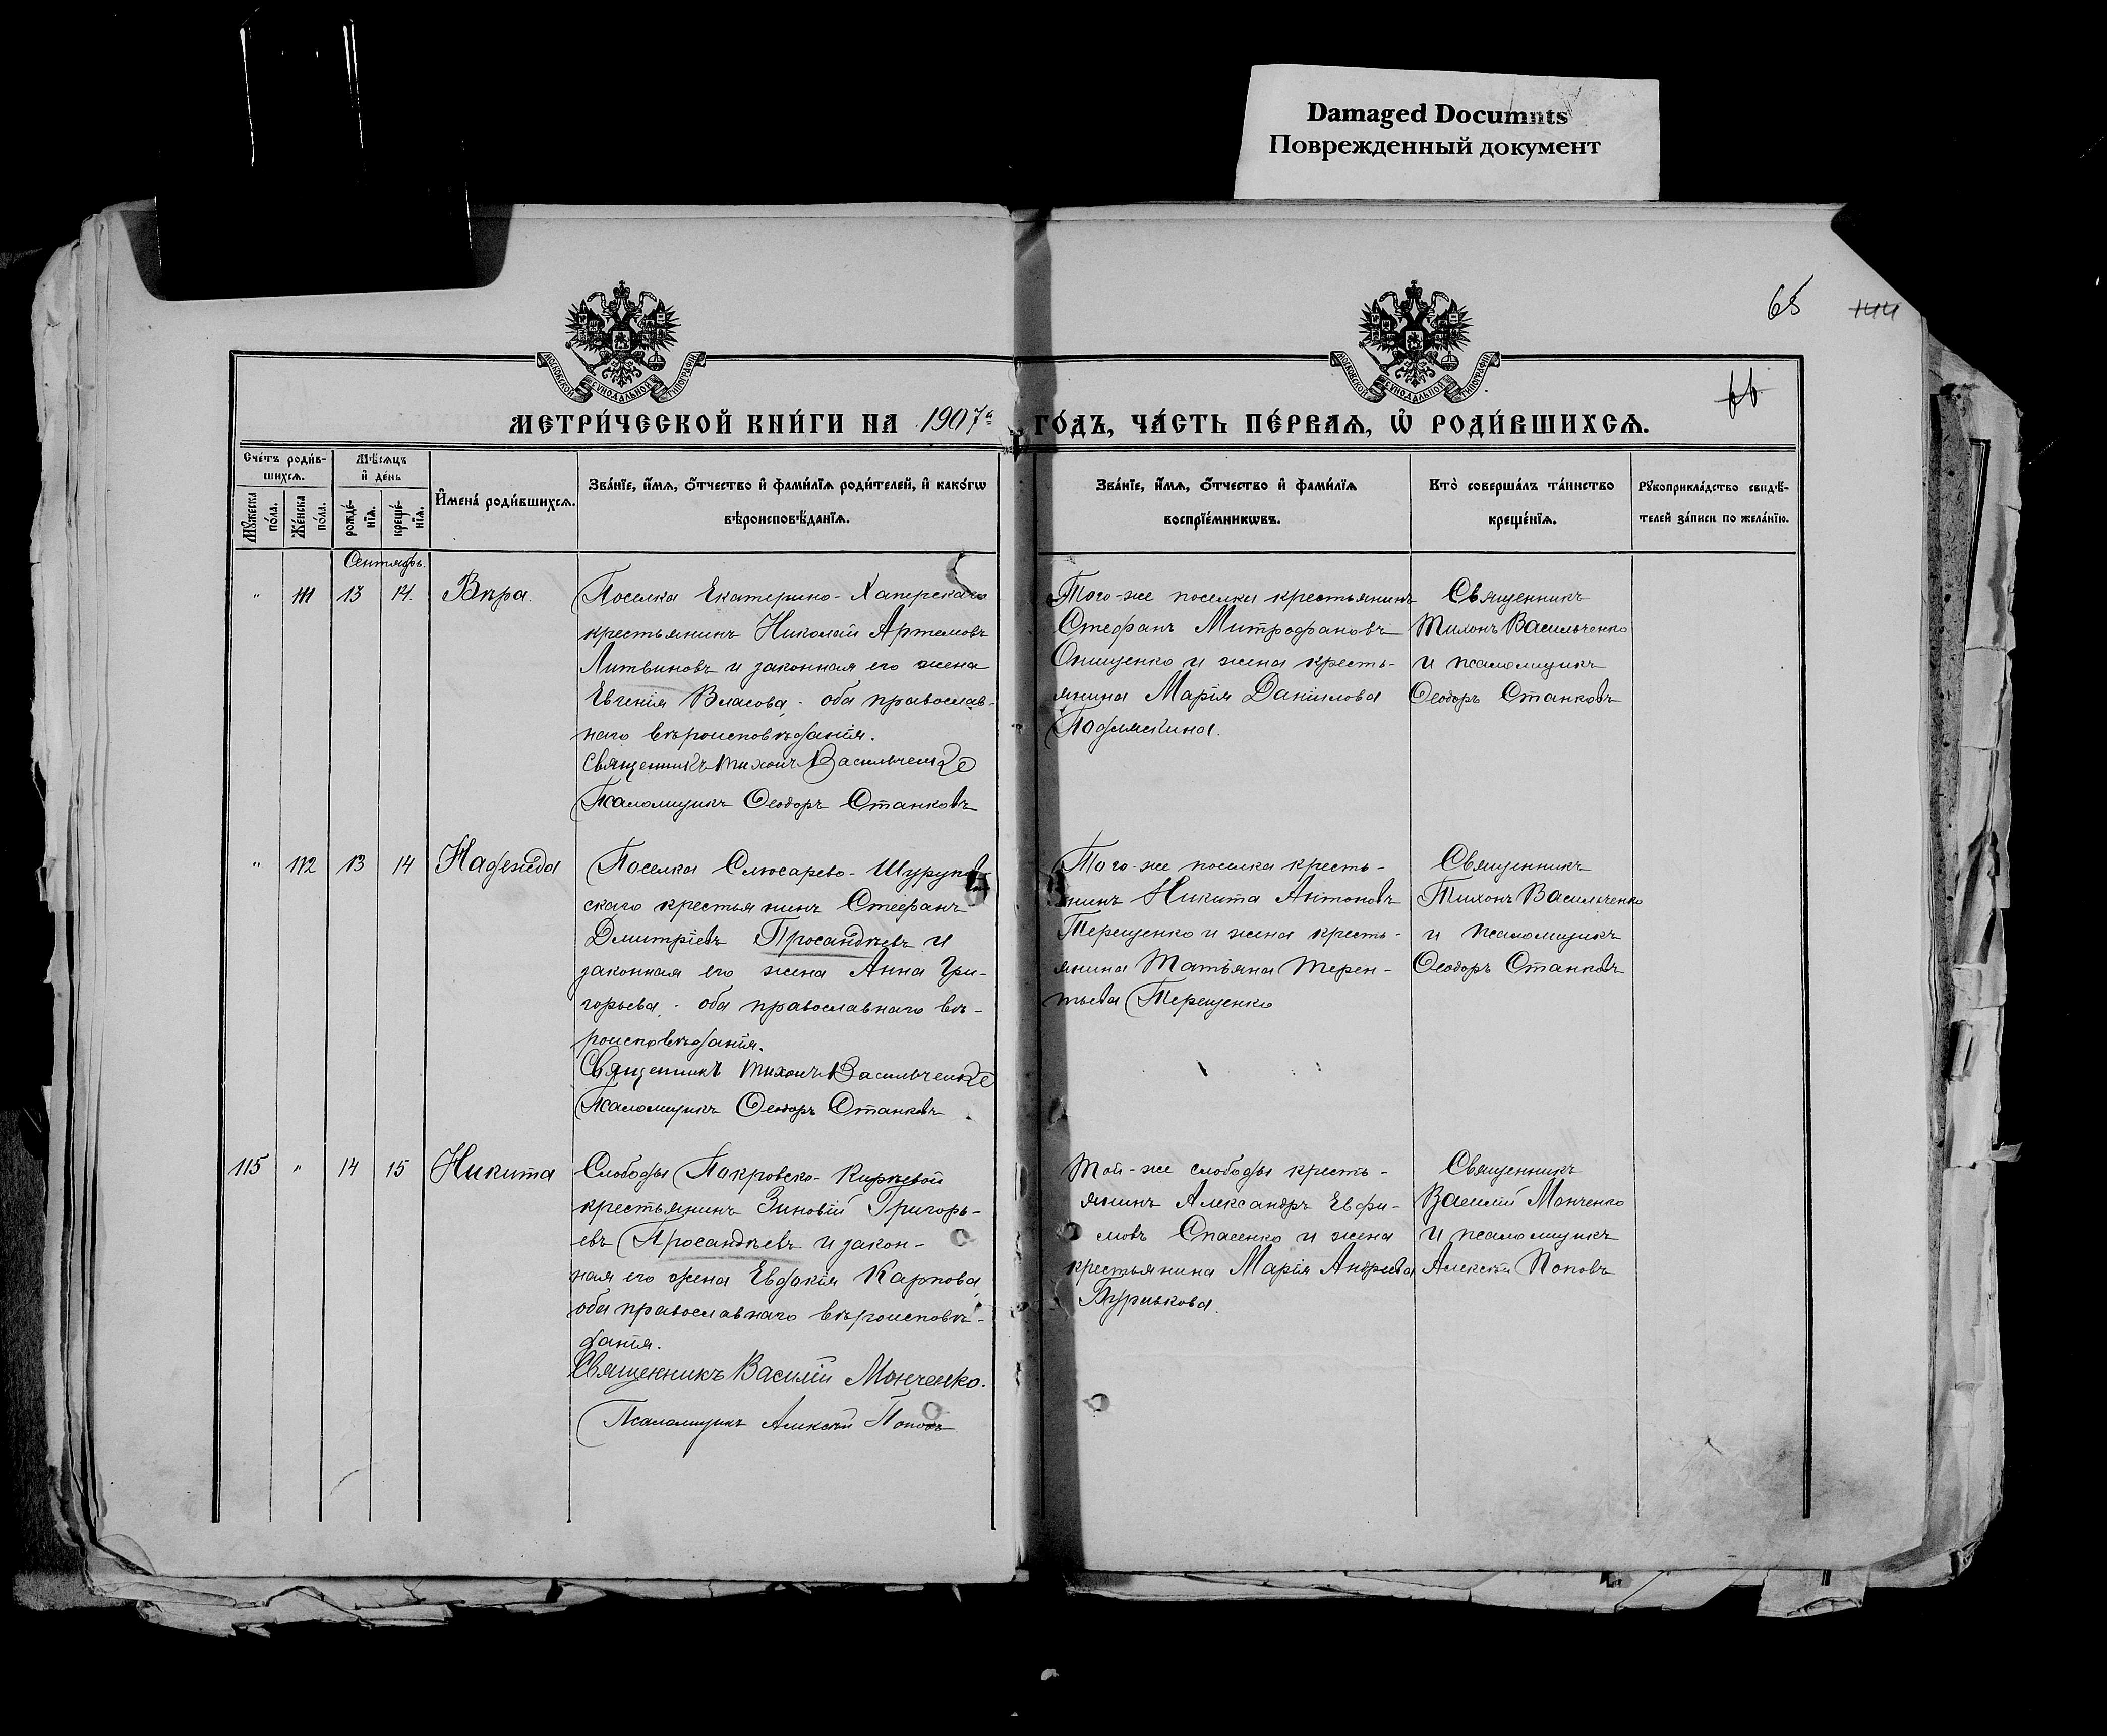 Damaged Documnts
Поврежденный документ
65
МОСКОВСКОЙ СѴНОДАЛЬНОЙ ТИПОГРАФІИ
МОСКОВСКОЙ СѴНОДАЛЬНОЙ ТИПОГРАФІИ
МЕТРИ́ЧЕСКОЙ КНИ́ГИ НА 1907й ГО́ДЪ, ЧА́СТЬ ПЕ́РВАЯ, Ѡ҆ РОДИ́ВШИХСЯ.
Сче́тъ роди́в-
шихся.
Мѣ́сяцъ
и҆ де́нь
Мꙋ́жеска по́ла.
Же́нска по́ла.
рожде́-
нїя.
креще́-
нїя.
И҆мена̀ роди́вшихся.
Зва́нїе, и҆́мя, ѻ҆́тчество и҆ фами́лїя роди́телей, и҆ како́гѡ
вѣроисповѣ́данїя.
Зва́нїе, и҆́мя, ѻ҆́тчество и҆ фами́лїя
воспрїе́мникѡвъ.
Кто̀ соверша́лъ та́инство
креще́нїя.
Рꙋкоприкла́дство свидѣ́-
телей за́писи по жела́нїю.
Сентябрь.
" 111 13 14. Вѣра.
Поселка Екатерино-Хаперскаго
крестьянинъ Николай Артемовъ
Литвиновъ и законная его жена
Евгенія Власова. оба православ-
наго вѣроисповѣданія.
Священникъ Тихонъ Васильченко
Псаломщикъ Ѳеодоръ Станковъ
Того-же поселка крестьянинъ
Стефанъ Митрофановъ
Онищенко и жена кресть-
янина Марія Данилова
Священникъ
Тихонъ Васильченко
и псаломщикъ
Ѳеодоръ Станковъ
" 112 13 14 Надежда
Поселка Слюсарево-Шурупов
скаго крестьянинъ Стефанъ
Дмитріевъ Просандѣевъ и
законная его жена Анна Гри-
горьева. оба православнаго вѣ-
роисповѣданія.
Священникъ Тихонъ Васильченко
Псаломщикъ Ѳеодоръ Станковъ
Того-же поселка кресть-
янинъ Никита Антоновъ
Терещенко и жена кресть-
янина Татьяна Терен-
тьева Терещенко
Священникъ
Тихонъ Васильченко
и псаломщикъ
Ѳеодоръ Станковъ
115 " 14 15 Никита
Слободы Покровско-Кирѣевой
крестьянинъ Зиновій Григорь-
евъ Просандѣевъ и закон-
ная его жена Евдокія Карпова,
оба православнаго вѣроисповѣ-
данія.
Священникъ Василій Монченко.
Псаломщикъ Алексѣй Поповъ
Той-же слободы кресть-
янинъ Александръ Евфи-
мовъ Спасенко и жена
крестьянина Марія Андреева
Священникъ
Василій Монченко
и псаломщикъ
Алексѣй Поповъ